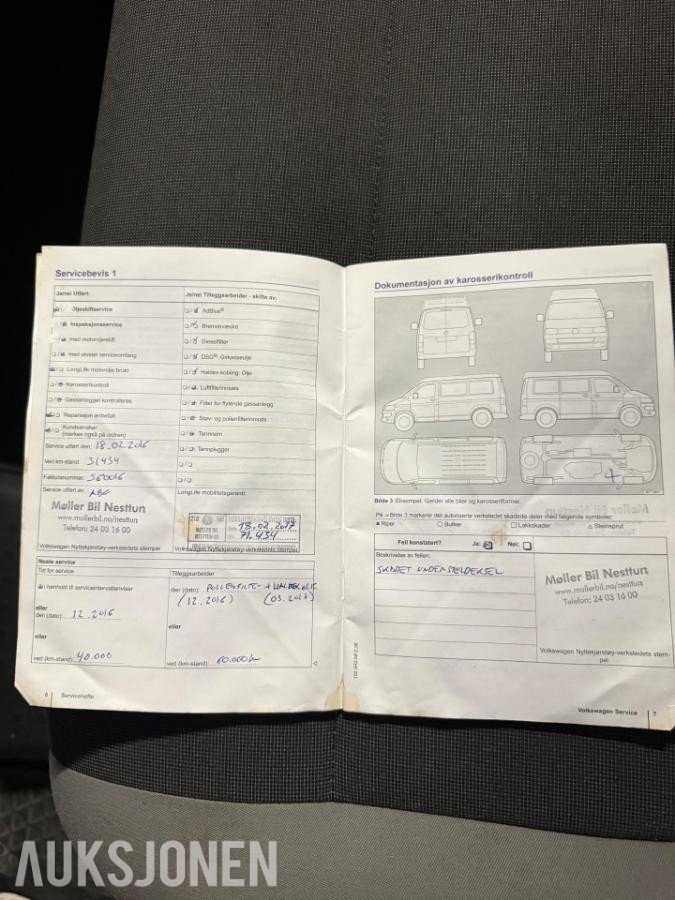 Servicebevis 1
Ja/nei Utført:
Ja/nei Tilleggsarbeider - skifte av:
Oljeskiftservice
AdBlue®
Inspeksjonsservice
Bremsevæske
med motoroljeskift
Dieselfilter
med utvidet serviceomfang
DSG®: Girkasseolje
LongLife motorolje brukt
Haldex-kobling: Olje
Karosserikontroll
Luftfilterinnsats
Gassanlegget kontrolleres
Filter for flytende gassanlegg
Reparasjon anbefalt
Støv- og pollenfilterinnsats
Kundeønsker
(merkes også på ordren)
Tannrem
Service utført den: 18.02.2016
Tennplugger
Ved km-stand: 31434
Fakturanummer: 560016
Service utført av:
LongLife mobilitetsgaranti:
Møller Bil Nesttun
www.mollerbil.no/nesttun
Telefon: 24 03 16 00
MØLLER BIL
18.02.2017
71.434
Volkswagen Nyttekjøretøy-verkstedets stempel
Volkswagen Nyttekjøretøy-verkstedets stempel
Neste service
Tid for service
Tilleggsarbeider:
i henhold til serviceintervallanviser
den (dato): POLLENFILTER + HALDEX OLJE
(12.2016) (03.2017)
eller
den (dato): 12.2016
eller
eller
ved (km-stand): 40.000
ved (km-stand): 60.000km
6 Servicehefte
Dokumentasjon av karosserikontroll
Bilde 3 Eksempel: Gjelder alle biler og karosseriformer.
På → Bilde 3 markerer det autoriserte verkstedet skadede deler med følgende symboler:
× Riper ○ Bulker □ Lakkskader △ Steinsprut
Feil konstatert? Ja: Nei:
Beskrivelse av feilen:
SKADET UNDERSTELDEKSEL
Møller Bil Nesttun
www.mollerbil.no/nesttun
Telefon: 24 03 16 00
Volkswagen Nyttekjøretøy-verkstedets stem-
pel
Volkswagen Service 7
AUKSJONEN